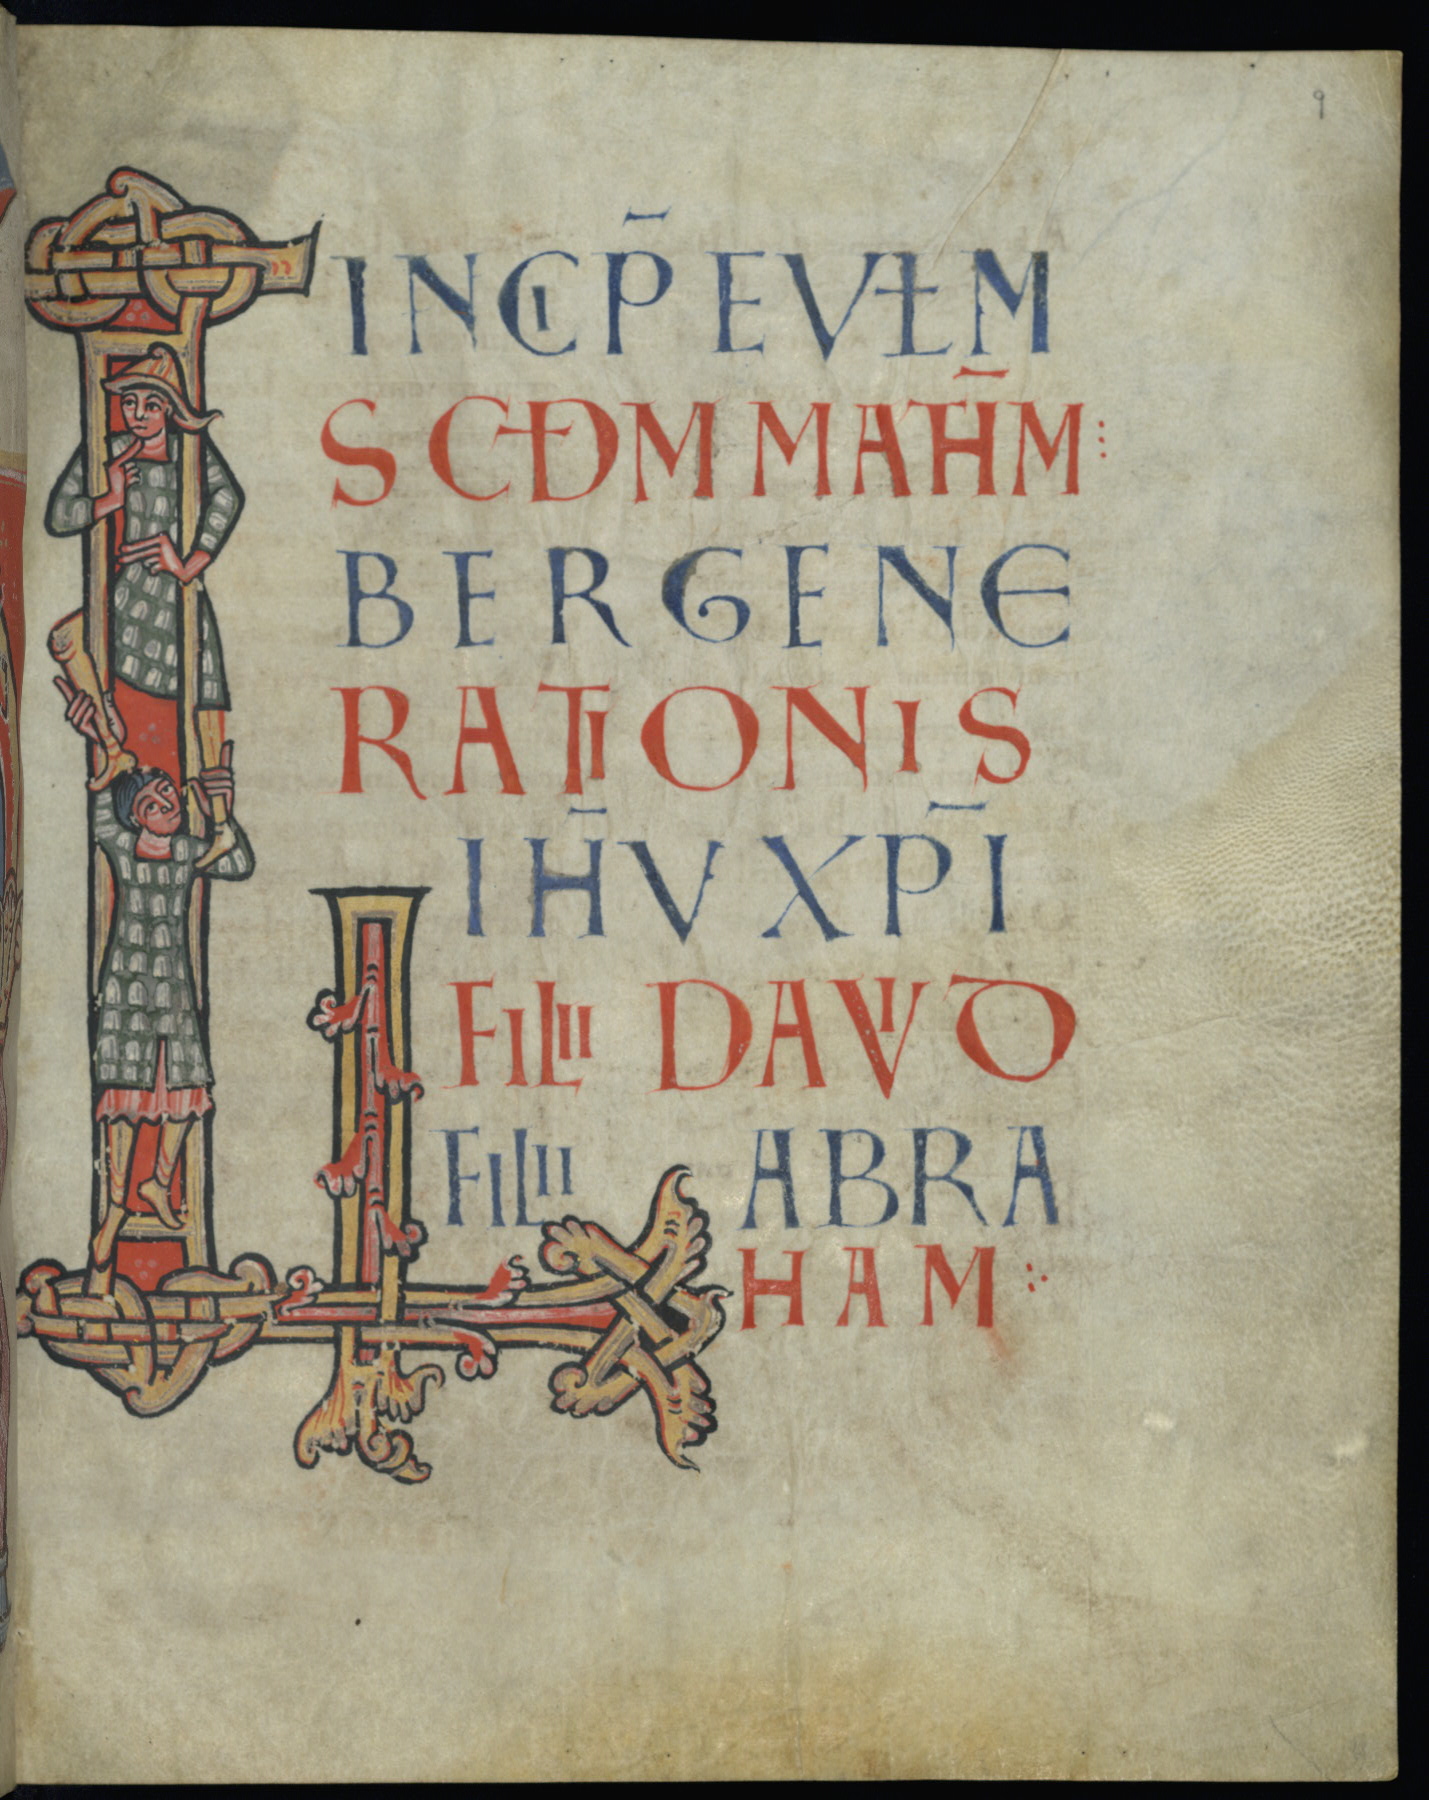 9
INCIP̄ EVŁM̄
SCĐM MATH̄M:
LIBER GENE
RATIONIS
IH̄V XP̄I
FILII DAVID
FILII ABRA
HAM: